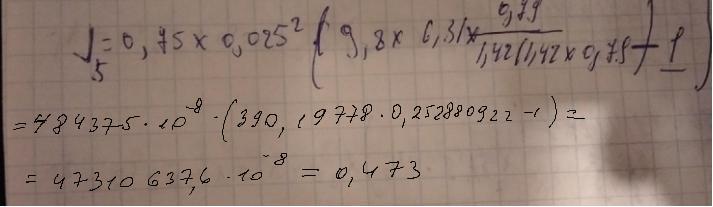 J₅ = 0,75 × 0,025² ( 9,8 × 6,31 × 0,79 / 1,42(1,42 × 0,79) - 1
= 484375 · 10⁻⁸ · (390, 19778 · 0,252880922 - 1) =
= 47310637,6 · 10⁻⁸ = 0,473